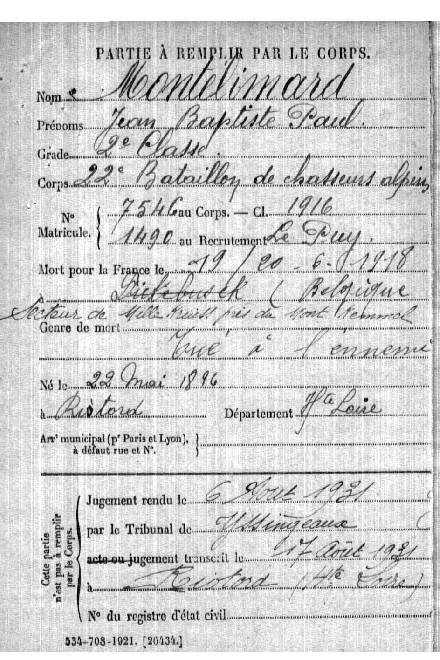 PARTIE À REMPLIR PAR LE CORPS.
Nom Montélimard
Prénoms Jean Baptiste Paul.
Grade 2e Classe
Corps 22e Bataillon de chasseurs alpins
N° Matricule. { 7546 au Corps. — Cl. 1916
1490 au Recrutement Le Puy.
Mort pour la France le 19/20-6-1918
Dickebusch (Belgique
Secteur de Mille Kruess près du Mont Kemmel
Genre de mort Tué à l'ennemi
Né le 22 Mai 1896
à Riotord Département Hte Loire
Arr' municipal (pr Paris et Lyon), }
à défaut rue et N°.
Cette partie n'est pas à remplir par le Corps.
Jugement rendu le 6 Aout 1921
par le Tribunal de Yssingeaux
acte ou jugement transcrit le 17 Août 1921
à Riotord (Hte Loire)
N° du registre d'état civil
534-708-1921. [26434.]